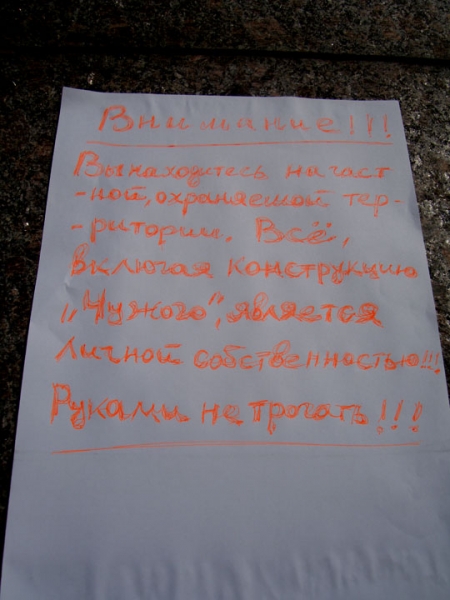 Внимание!!!
Вы находитесь на част
-ной, охраняемой тер-
-ритории. Всё,
включая конструкцию
„Чужого", является
личной собственностью!!!
Руками не трогать!!!